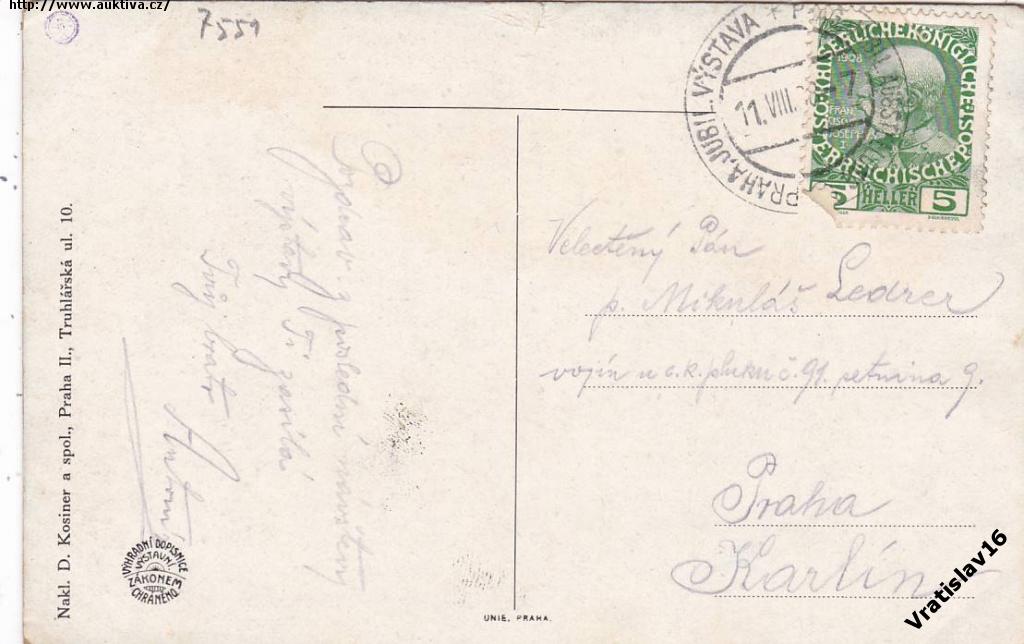 http://www.auktiva.cz/
7551
PRAHA, JUBIL. VÝSTAVA
11. VIII.
KAISERLICHE KÖNIGLICHE
ÖSTERREICHISCHE POST
1908
FRANCISCO JOSEPH I
5 HELLER 5
Velectěný Pán
p. Mikuláš Ledrer
vojín u c. k. pluku č. 91. setnina 9.
Praha
Karlín
Pozdrav z poslední návštěvy
výstavy Ti zasílá
Tvůj bratr
Antonín
Nakl. D. Kosiner a spol., Praha II., Truhlářská ul. 10.
VÝHRADNÍ DOPISNICE
VÝSTAVNÍ
ZÁKONEM
CHRÁNĚNO
UNIE, PRAHA.
Vratislav16